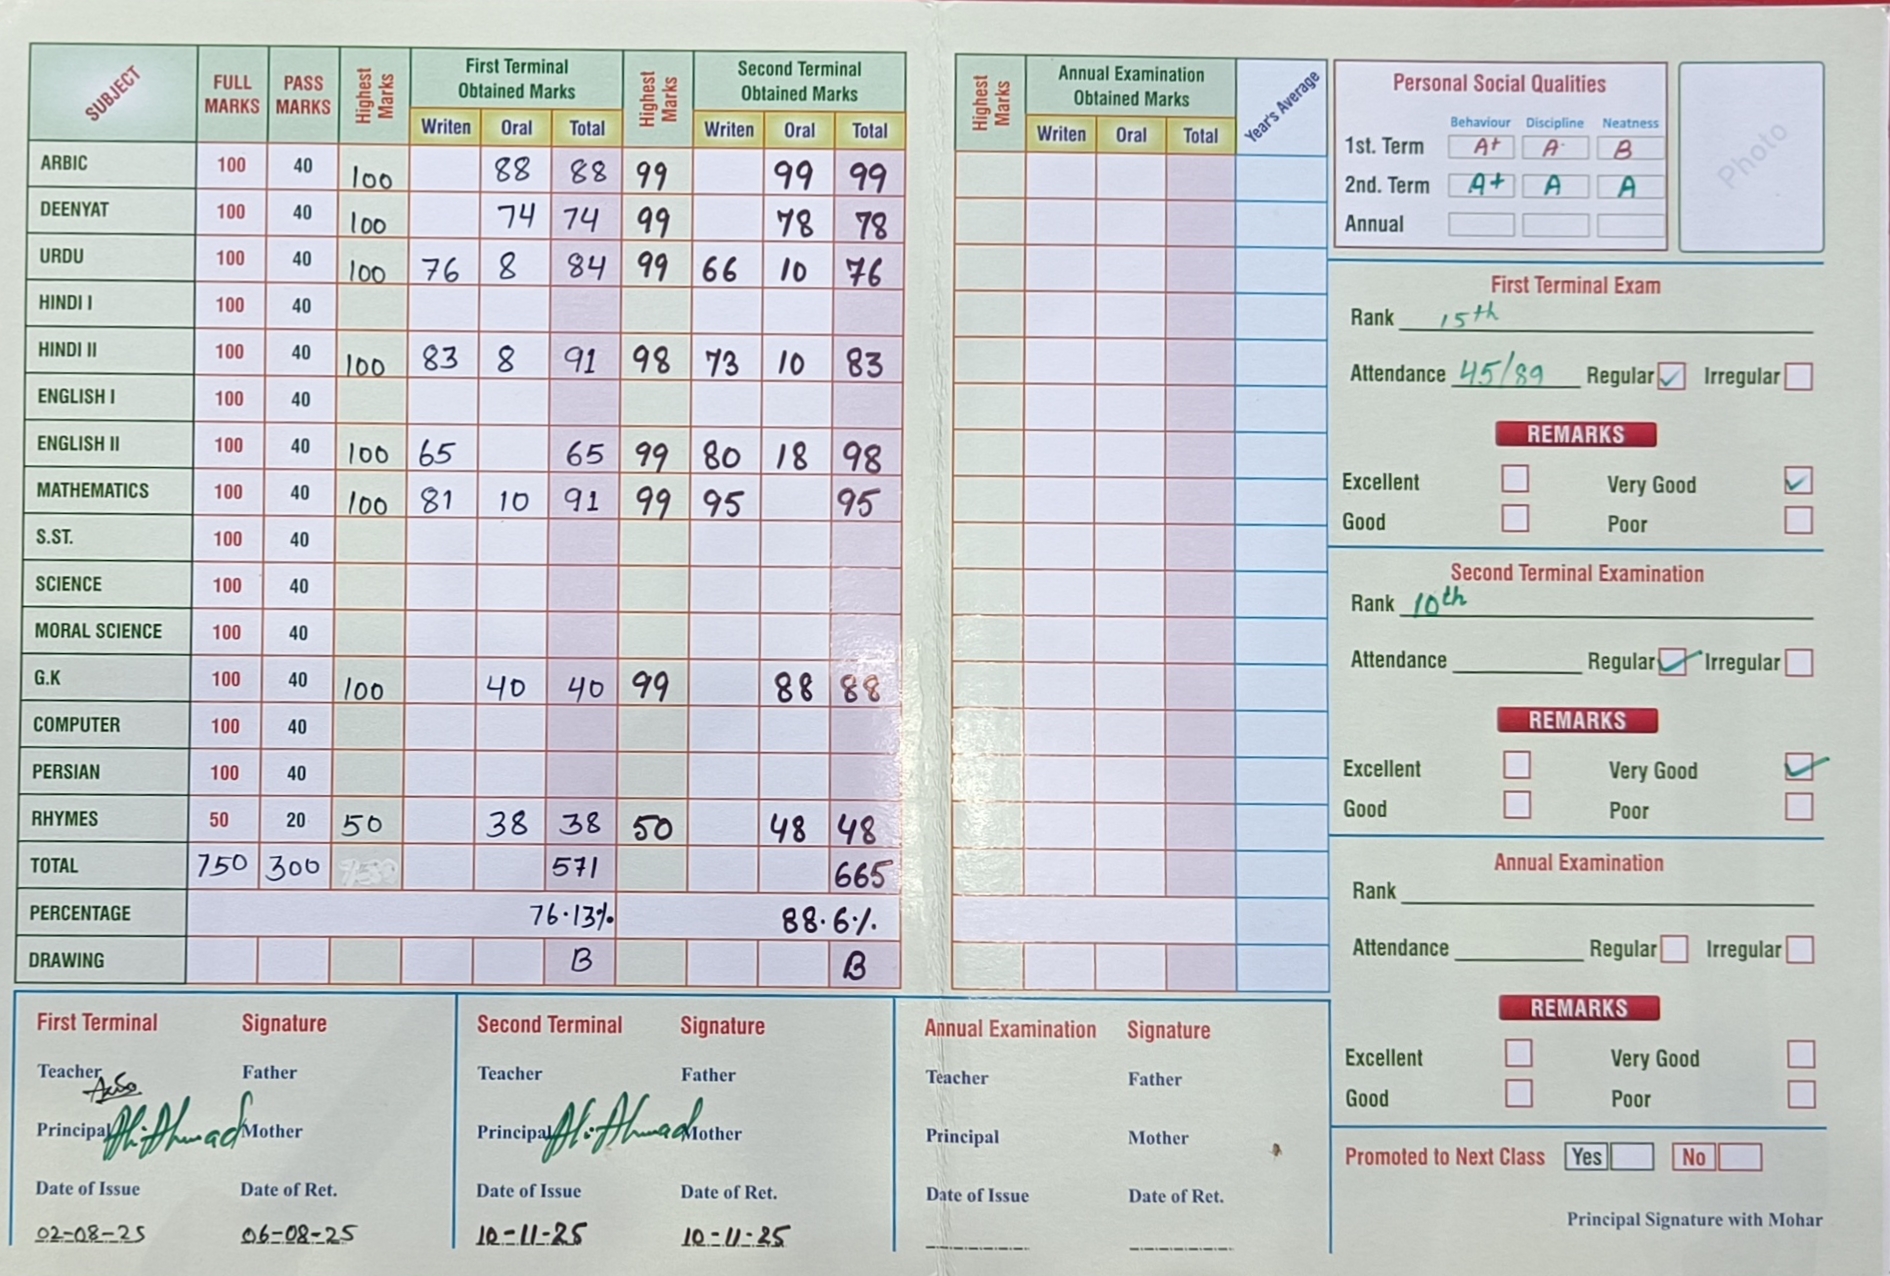 SUBJECT FULL MARKS PASS MARKS Highest Marks First Terminal Obtained Marks Highest Marks Second Terminal Obtained Marks
Writen Oral Total Writen Oral Total
ARBIC 100 40 100 88 88 99 99 99
DEENYAT 100 40 100 74 74 99 78 78
URDU 100 40 100 76 8 84 99 66 10 76
HINDI I 100 40
HINDI II 100 40 100 83 8 91 98 73 10 83
ENGLISH I 100 40
ENGLISH II 100 40 100 65 65 99 80 18 98
MATHEMATICS 100 40 100 81 10 91 99 95 95
S.ST. 100 40
SCIENCE 100 40
MORAL SCIENCE 100 40
G.K 100 40 100 40 40 99 88 88
COMPUTER 100 40
PERSIAN 100 40
RHYMES 50 20 50 38 38 50 48 48
TOTAL 750 300 750 571 665
PERCENTAGE 76.13% 88.6%
DRAWING B B
Highest Marks Annual Examination Obtained Marks Year's Average
Writen Oral Total
Personal Social Qualities
Behaviour Discipline Neatness
1st. Term A+ A B
2nd. Term A+ A A
Annual
Photo
First Terminal Exam
Rank 15th
Attendance 45/89 Regular Irregular
REMARKS
Excellent Very Good
Good Poor
Second Terminal Examination
Rank 10th
Attendance Regular Irregular
REMARKS
Excellent Very Good
Good Poor
Annual Examination
Rank
Attendance Regular Irregular
REMARKS
Excellent Very Good
Good Poor
Promoted to Next Class Yes No
Principal Signature with Mohar
First Terminal Signature
Teacher Father
Principal Mother
Date of Issue Date of Ret.
02-08-25 06-08-25
Second Terminal Signature
Teacher Father
Principal Mother
Date of Issue Date of Ret.
10-11-25 10-11-25
Annual Examination Signature
Teacher Father
Principal Mother
Date of Issue Date of Ret.